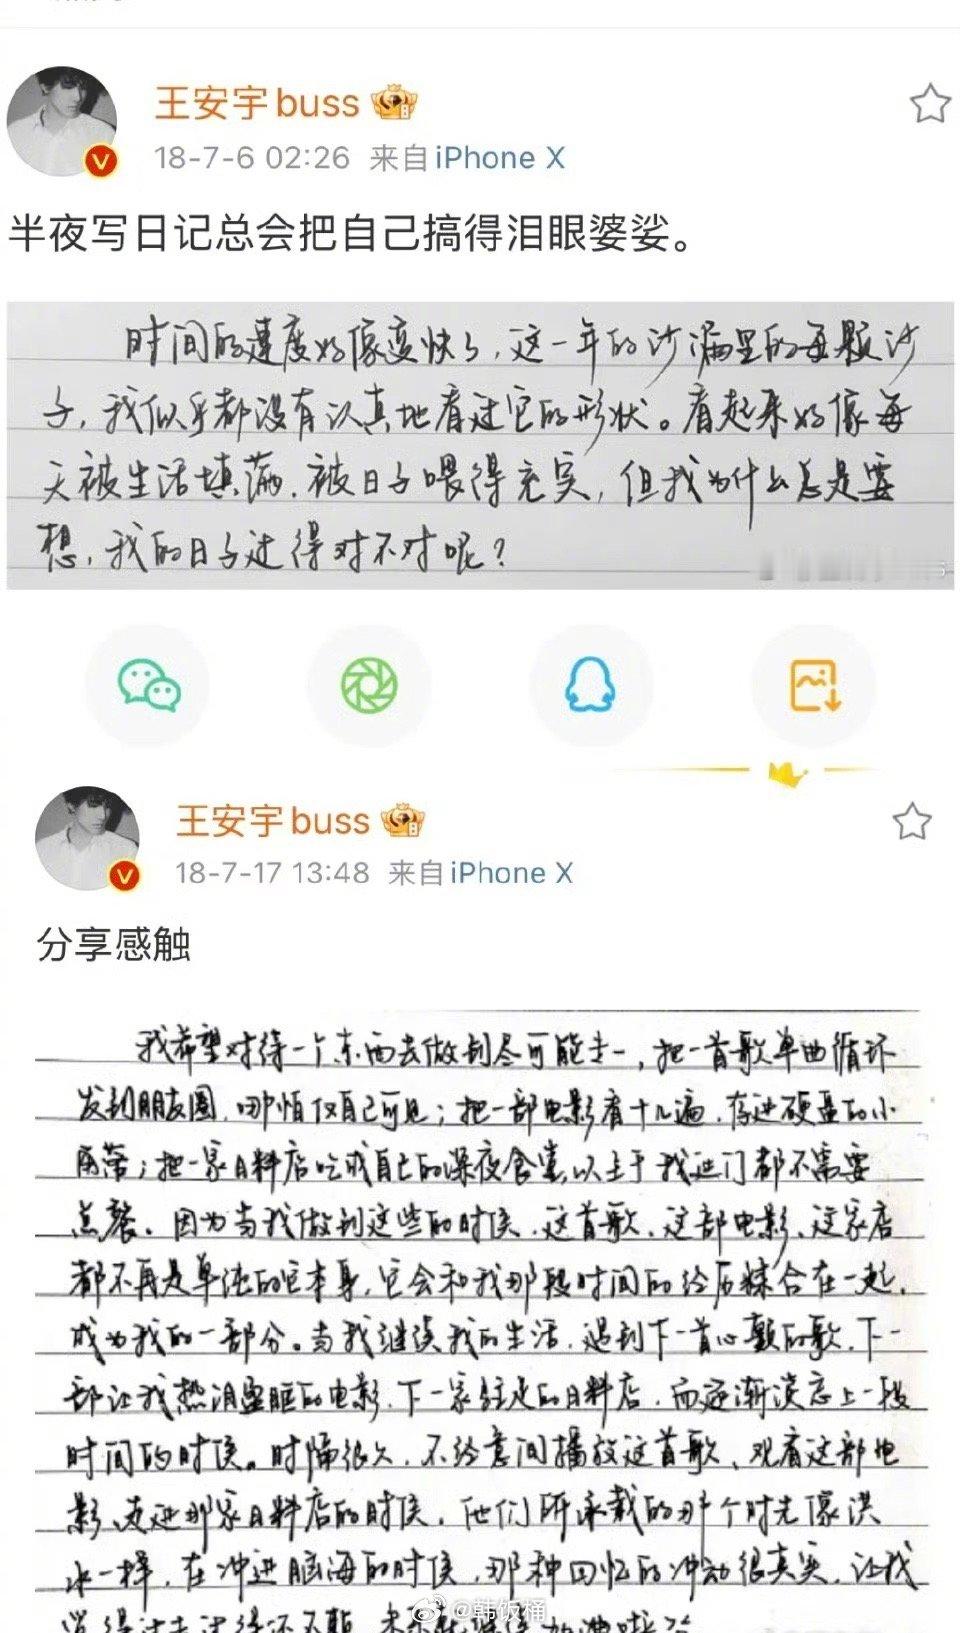 王安宇buss
18-7-6 02:26 来自 iPhone X
半夜写日记总会把自己搞得泪眼婆娑。
时间的速度好像变快了,这一年的沙漏里的每颗沙
子,我似乎都没有认真地看过它的形状。看起来好像每
天被生活填满,被日子喂得充实,但我为什么总是要
想,我的日子过得对不对呢?
王安宇buss
18-7-17 13:48 来自 iPhone X
分享感触
我希望对待一个东西去做到尽可能专一,把一首歌单曲循环
发到朋友圈,哪怕仅自己可见;把一部电影看十几遍,存进硬盘的小
角落;把一家日料店吃成自己的深夜食堂,以至于我进门都不需要
点餐。因为当我做到这些的时候,这首歌、这部电影、这家店
都不再是单纯的它本身,它会和我那段时间的经历糅合在一起,
成为我的一部分。当我继续我的生活,遇到下一首心颤的歌,下一
部让我热泪盈眶的电影,下一家经过的日料店,而逐渐淡忘上一段
时间的时候。时隔很久,不经意间播放这首歌、观看这部电
影、走进那家日料店的时候,他们所承载的那个时光像洪
水一样,在冲进脑海的时候,那种回忆的冲动很真实,让我
觉得过去过得还不赖,未来
@韩饭桶